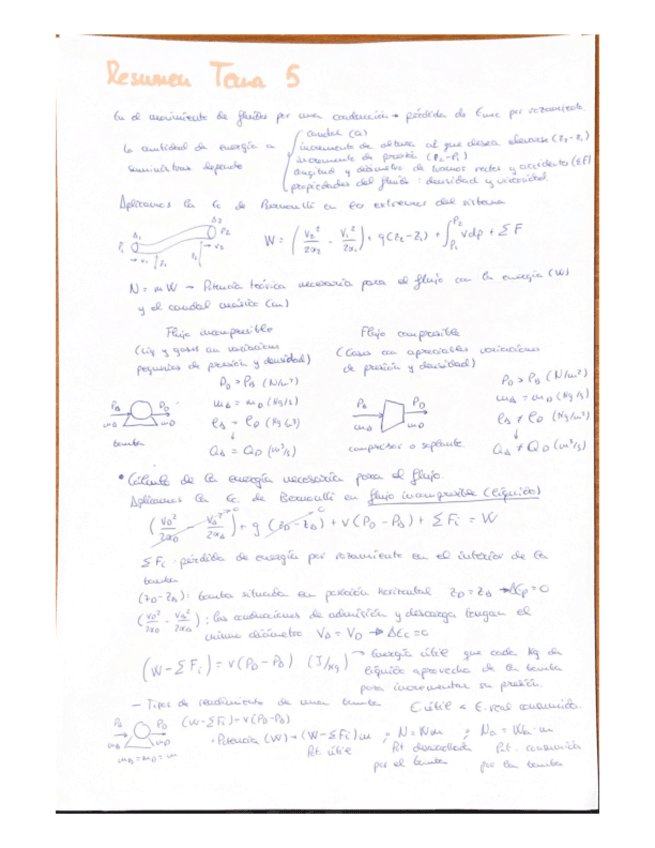 Resumen Tema 5
En el movimiento de fluidos por una conducción → pérdida de Emec por rozamiento.
la cantidad de energía a suministrar depende
caudal (Q)
incremento de altura al que desea elevarse (z₂-z₁)
incremento de presión (P₂-P₁)
longitud y diámetro de tramos rectos y accidentes (ΣF)
propiedades del fluido: densidad y viscosidad.
Aplicamos la Ec de Bernoulli en los extremos del sistema
W = (V₂²/2α₂ - V₁²/2α₁) + g(z₂-z₁) + ∫_{P₁}^{P₂} vdp + ΣF
N = m W → Potencia teórica necesaria para el flujo con la energía (W)
y el caudal másico (m)
Flujo incompresible
(liq y gases con variaciones
pequeñas de presión y densidad)
P_D > P_A (N/m²)
m_A = m_D (Kg/s)
ρ_A = ρ_D (Kg/m³)
↓
Q_A = Q_D (m³/s)
P_A P_D
m_A m_D
bomba
Flujo compresible
(Gases con apreciables variaciones
de presión y densidad)
P_D > P_A (N/m²)
m_A = m_D (Kg/s)
ρ_A ≠ ρ_D (Kg/m³)
↓
Q_A ≠ Q_D (m³/s)
P_A P_D
m_A m_D
compresor o soplante
• Cálculo de la energía necesaria para el flujo.
Aplicamos la Ec de Bernoulli en flujo incompresible (líquido)
(V_D²/2α_D - V_A²/2α_A) + g (z_D-z_A) + v(P_D-P_A) + ΣFi = W
ΣFi: pérdida de energía por rozamiento en el interior de la
bomba
(z_D-z_A): bomba situada en posición horizontal z_D = z_A → ΔEp = 0
(V_D²/2α_D - V_A²/2α_A): las conducciones de admisión y descarga tengan el
mismo diámetro V_A = V_D → ΔEc = 0
(W-ΣFi) = v(P_D-P_A) (J/Kg) → Energía útil que cada Kg de
líquido aprovecha de la bomba
para incrementar su presión.
- Tipos de rendimiento de una bomba E útil < E real consumida.
P_A P_D (W-ΣFi) = v(P_D-P_A)
m_A m_D
m_A = m_D = m
• Potencia (W) → (W-ΣFi)m ; N = Wm ; Na = Wa·m
Pot. útil
Pot desarrollada
por la bomba
Pot. consumida
por la bomba